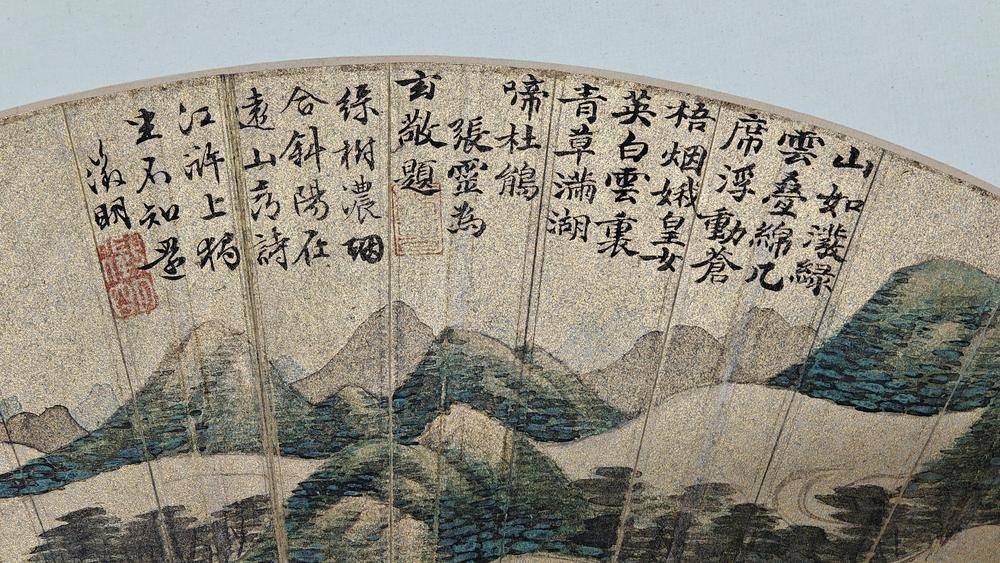 山如潑綠
雲疊綿几
席浮動蒼
梧烟娥皇女
英白雲裏
青草滿湖
啼杜鵑
張靈為
玄敬題
綠樹濃烟
合斜陽在
遠山詩
江滸上
坐不知還
徵明